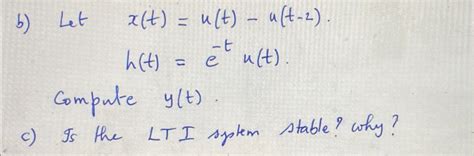 b) Let x(t) = u(t) - u(t-2).
h(t) = e^-t u(t).
Compute y(t).
c) Is the LTI system stable? why?